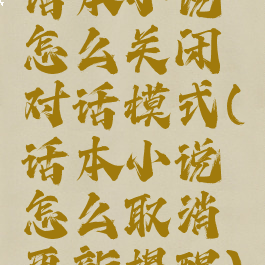 话本小说
怎么关闭
对话模式(
话本小说
怎么取消
更新提醒)